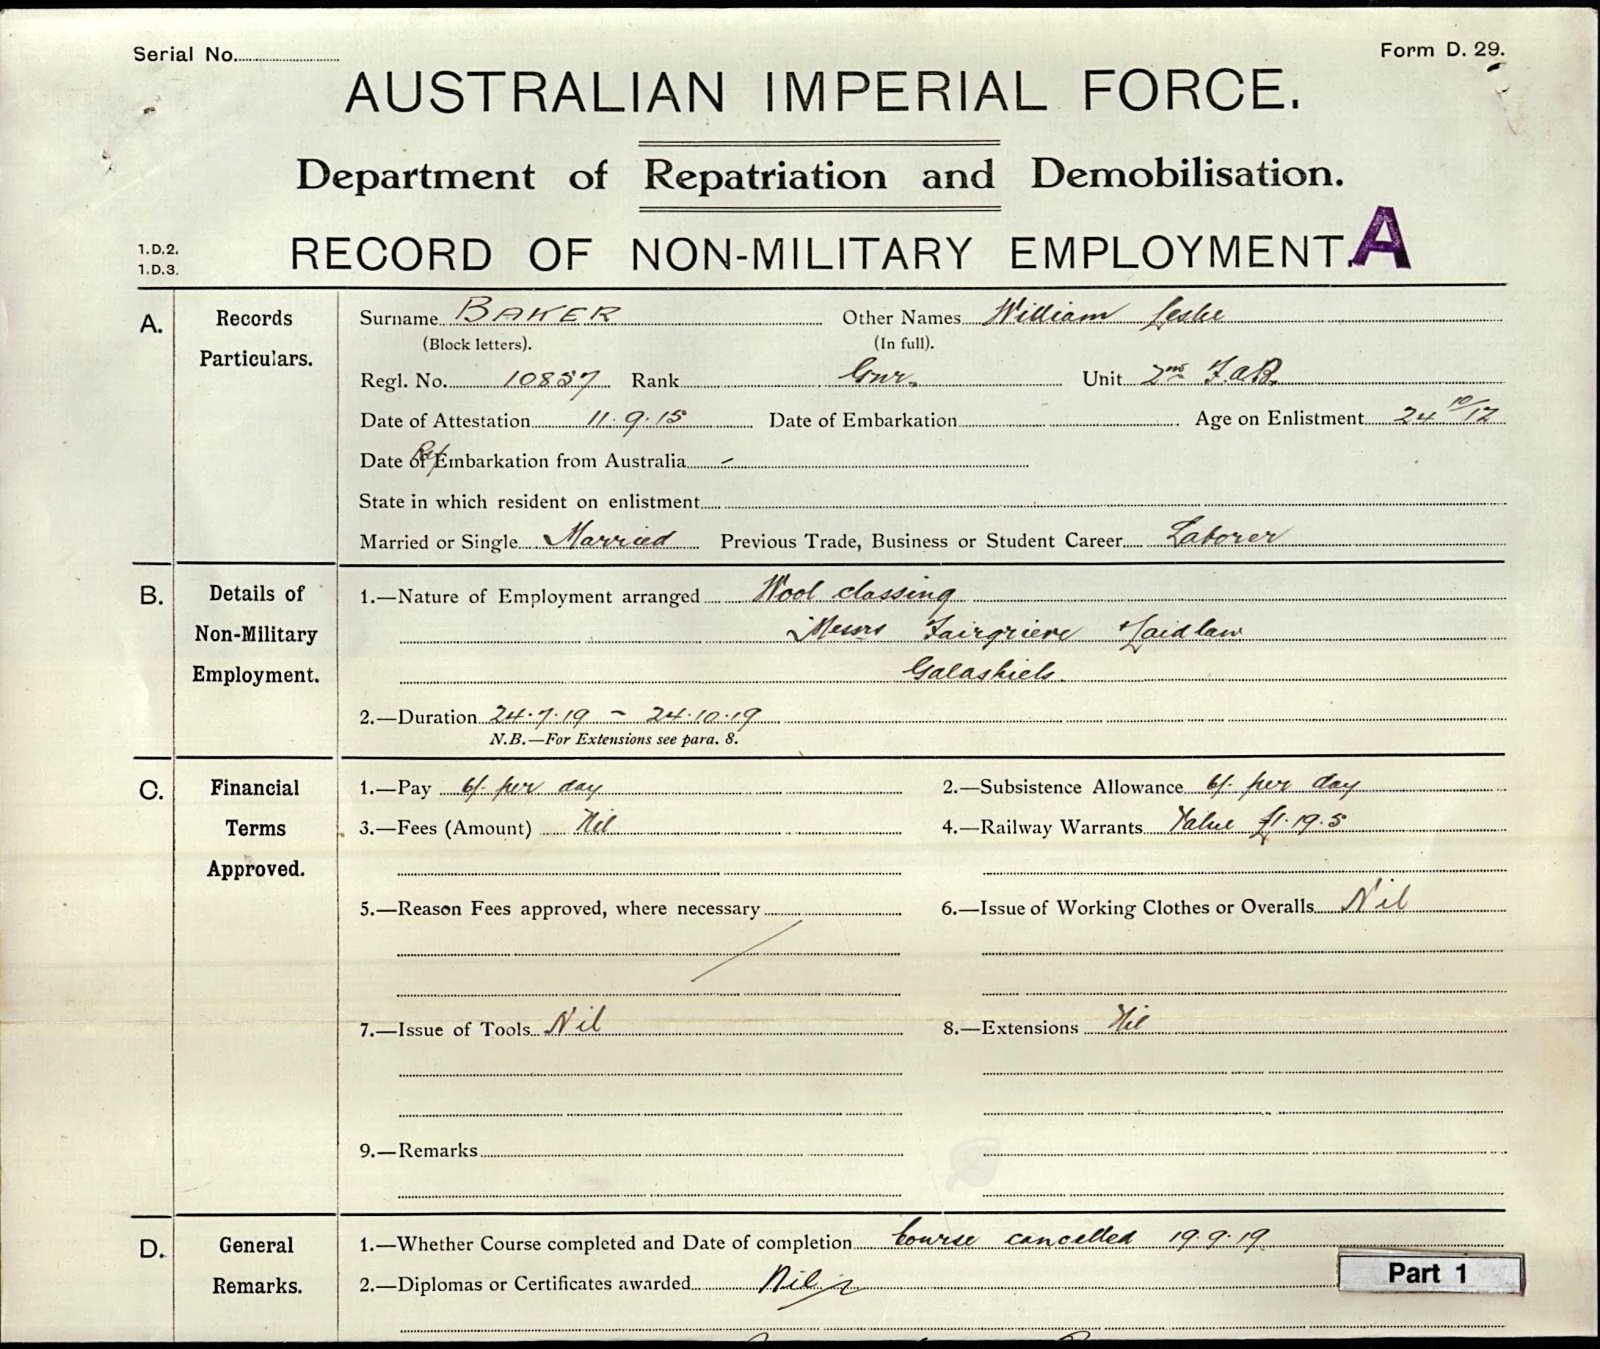 Serial No. Form D. 29.
AUSTRALIAN IMPERIAL FORCE.
Department of Repatriation and Demobilisation.
1.D.2.
1.D.3.
RECORD OF NON-MILITARY EMPLOYMENT. A
A. Records Particulars.
Surname BAKER Other Names William Leslie
(Block letters). (In full).
Regl. No. 10857 Rank Gnr. Unit 2nd F.A.B.
Date of Attestation 11.9.15 Date of Embarkation Age on Enlistment 24 10/12
Date of Embarkation from Australia -
State in which resident on enlistment
Married or Single Married Previous Trade, Business or Student Career Laborer
B. Details of Non-Military Employment.
1.—Nature of Employment arranged Wool classing
Messrs Fairgrieve & Laidlaw
Galashiels.
2.—Duration 24.7.19 - 24.10.19
N.B.—For Extensions see para. 8.
C. Financial Terms Approved.
1.—Pay 6/- per day 2.—Subsistence Allowance 6/- per day
3.—Fees (Amount) Nil 4.—Railway Warrants Value £1.19.5
5.—Reason Fees approved, where necessary 6.—Issue of Working Clothes or Overalls Nil
7.—Issue of Tools Nil 8.—Extensions Nil
9.—Remarks
D. General Remarks.
1.—Whether Course completed and Date of completion Course cancelled 19.9.19
2.—Diplomas or Certificates awarded Nil
Part 1